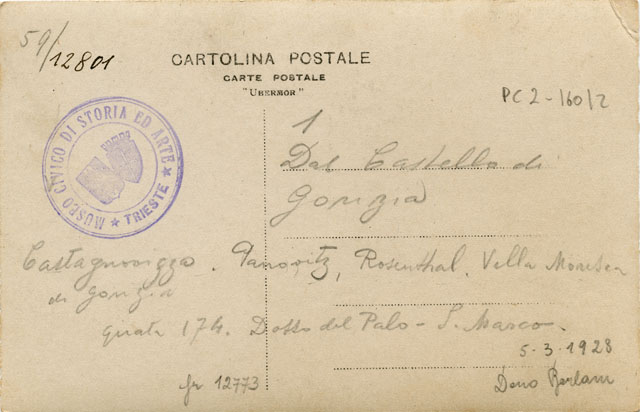 59/12801
CARTOLINA POSTALE
CARTE POSTALE
"UBERMOR"
PC 2-160/2
MUSEO CIVICO DI STORIA ED ARTE
★ TRIESTE ★
1
Dal Castello di
Gorizia
Castagnovizza. Panovitz, Rosenthal. Villa
di Gorizia
174. Dosso del Palo - S. Marco.
5-3-1928
12773